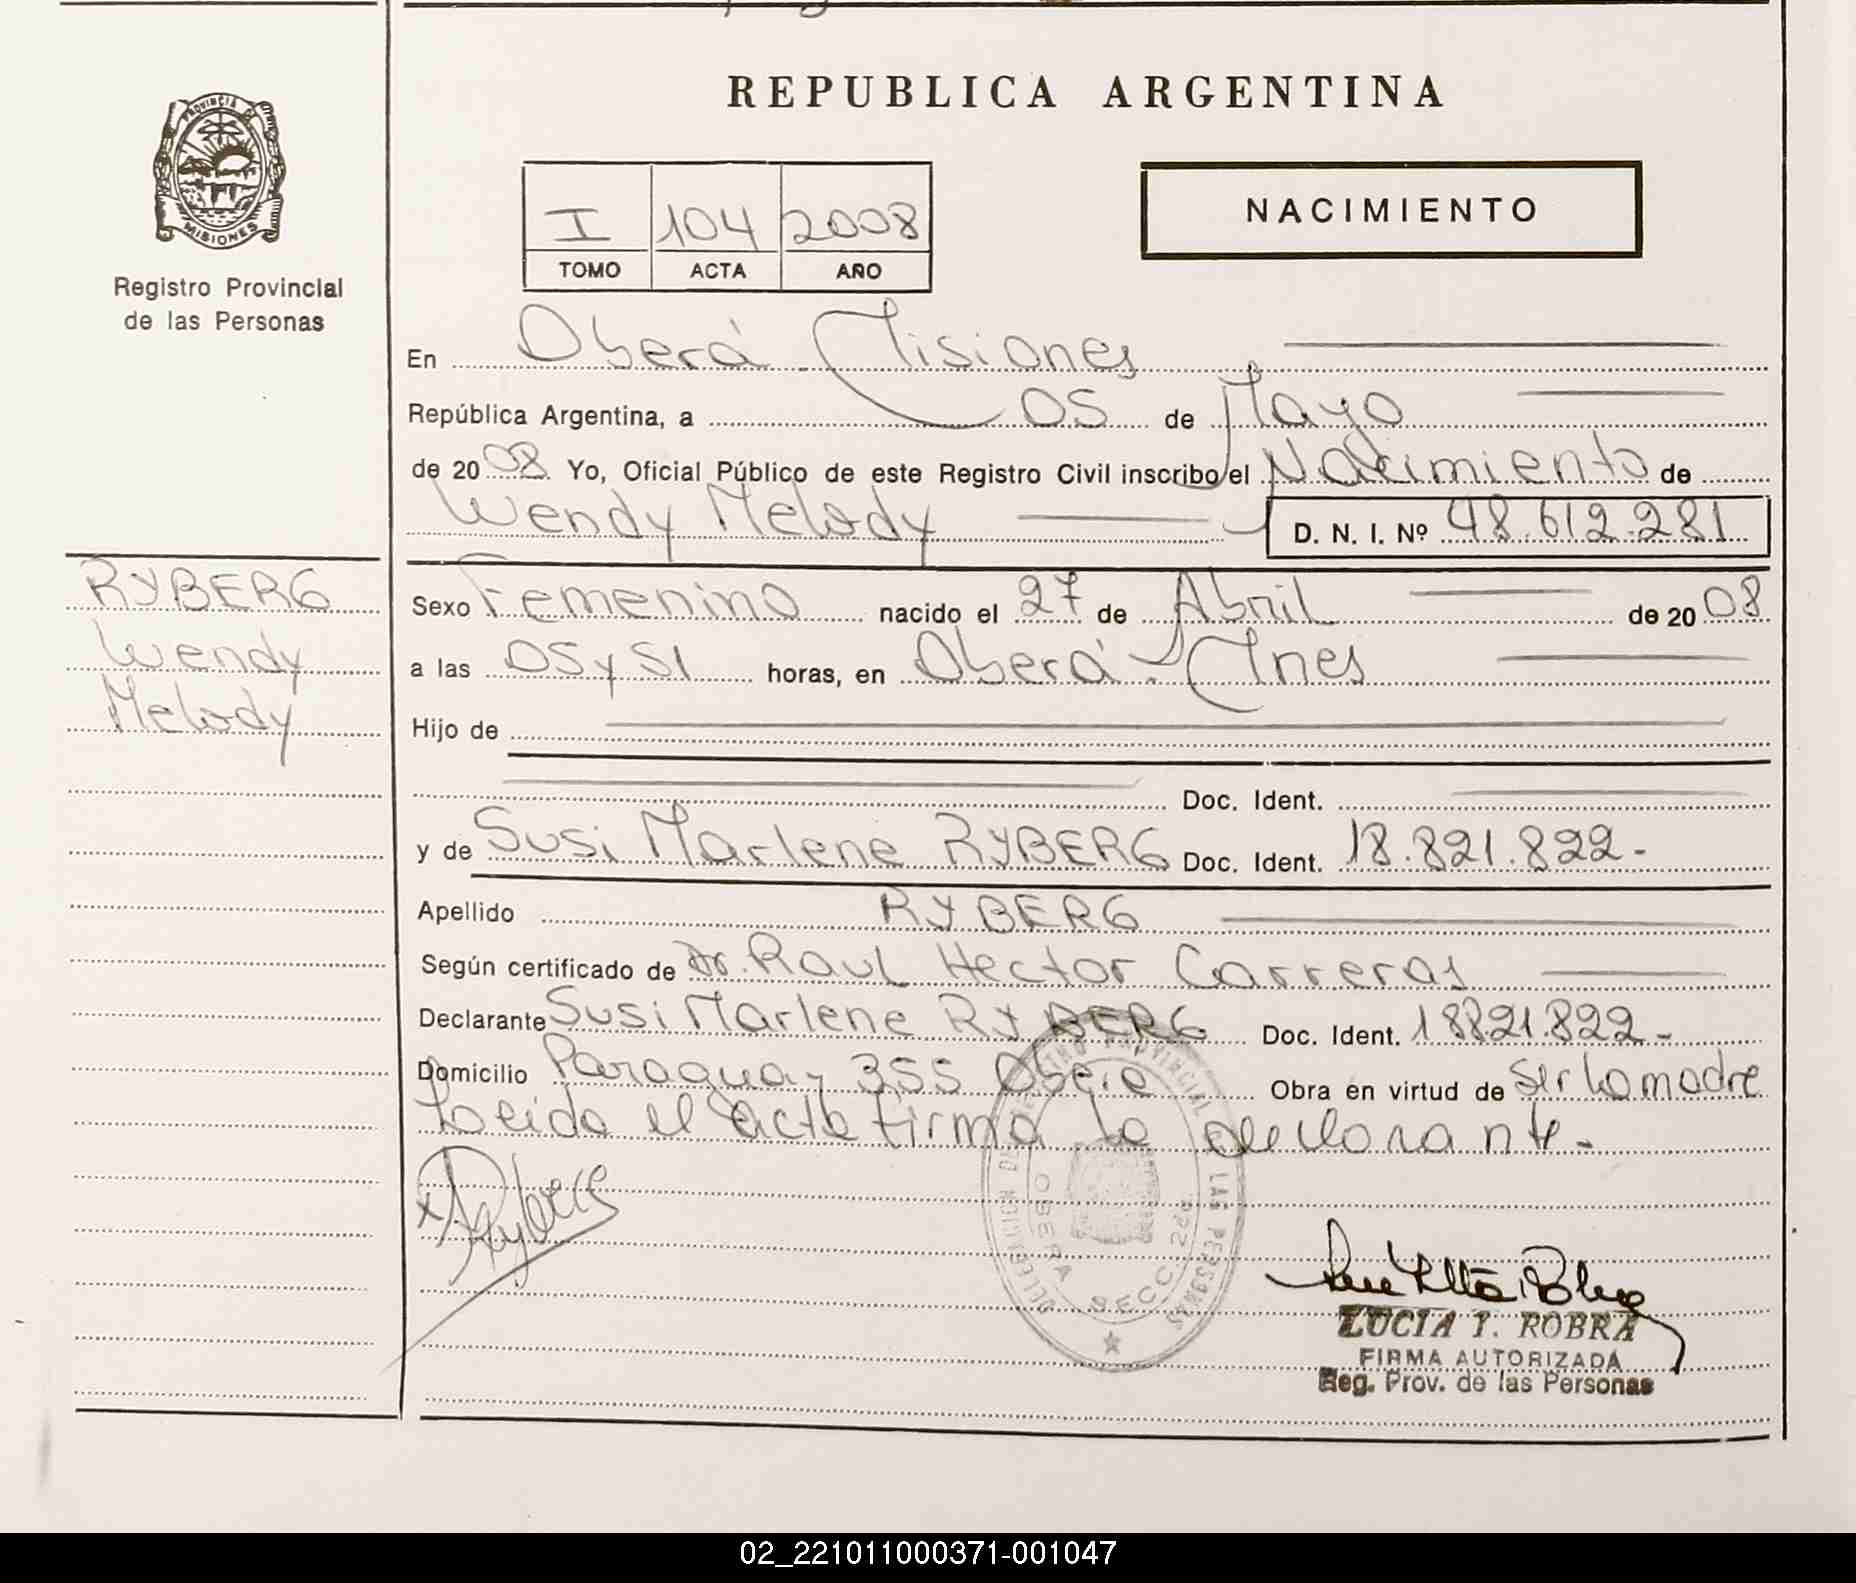 REPUBLICA ARGENTINA
PROVINCIA
MISIONES
Registro Provincial
de las Personas
I 104 2008
TOMO ACTA AÑO
NACIMIENTO
En Oberá Misiones
República Argentina, a 05 de Mayo
de 2008 Yo, Oficial Público de este Registro Civil inscribo el Nacimiento de
Wendy Melody D. N. I. Nº 48.612.281
RYBERG
Wendy
Melody
Sexo Femenino nacido el 27 de Abril de 2008
a las 05 y 51 horas, en Oberá. Mnes
Hijo de
Doc. Ident.
y de Susi Marlene RYBERG Doc. Ident. 18.821.822-
Apellido RYBERG
Según certificado de Dr. Raul Hector Carreras
Declarante Susi Marlene RYBERG Doc. Ident. 18821.822-
Domicilio Paraguay 355 Oberá Obra en virtud de ser la madre
Leida el acta firma la declarante-
x Ryberg
DELEGACION DE REGISTRO PROVINCIAL DE LAS PERSONAS
OBERA SECC.
LUCIA I. ROBRA
FIRMA AUTORIZADA
Reg. Prov. de las Personas
02_221011000371-001047